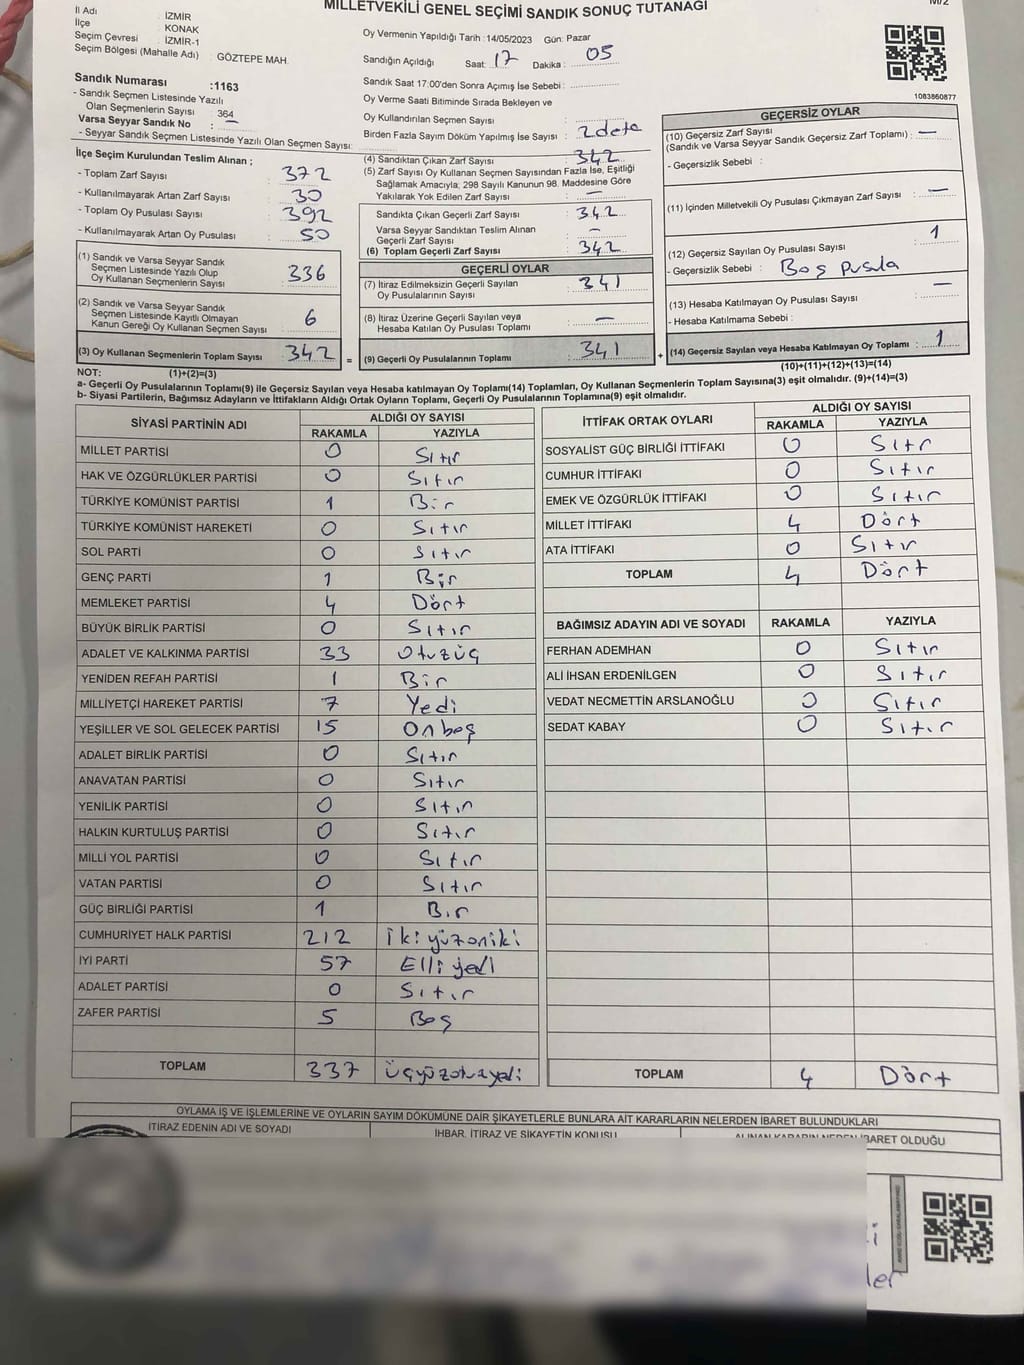 M/2
MİLLETVEKİLİ GENEL SEÇİMİ SANDIK SONUÇ TUTANAĞI
İl Adı : İZMİR
İlçe : KONAK
Seçim Çevresi : İZMİR-1
Seçim Bölgesi (Mahalle Adı) : GÖZTEPE MAH.
Sandık Numarası :1163
- Sandık Seçmen Listesinde Yazılı
Olan Seçmenlerin Sayısı 364
Varsa Seyyar Sandık No : —
- Seyyar Sandık Seçmen Listesinde Yazılı Olan Seçmen Sayısı:
Oy Vermenin Yapıldığı Tarih :14/05/2023 Gün: Pazar
Sandığın Açıldığı Saat: 17 Dakika : 05
Sandık Saat 17:00'den Sonra Açımış İse Sebebi :
Oy Verme Saati Bitiminde Sırada Bekleyen ve
Oy Kullandırılan Seçmen Sayısı :
Birden Fazla Sayım Döküm Yapılmış İse Sayısı : 2 dete
1083860877
İlçe Seçim Kurulundan Teslim Alınan ;
- Toplam Zarf Sayısı : 372
- Kullanılmayarak Artan Zarf Sayısı : 30
- Toplam Oy Pusulası Sayısı : 392
- Kullanılmayarak Artan Oy Pusulası : 50
(1) Sandık ve Varsa Seyyar Sandık
Seçmen Listesinde Yazılı Olup
Oy Kullanan Seçmenlerin Sayısı : 336
(2) Sandık ve Varsa Seyyar Sandık
Seçmen Listesinde Kayıtlı Olmayan
Kanun Gereği Oy Kullanan Seçmen Sayısı : 6
(3) Oy Kullanan Seçmenlerin Toplam Sayısı : 342
(4) Sandıktan Çıkan Zarf Sayısı : 342
(5) Zarf Sayısı Oy Kullanan Seçmen Sayısından Fazla İse, Eşitliği
Sağlamak Amacıyla; 298 Sayılı Kanunun 98. Maddesine Göre
Yakılarak Yok Edilen Zarf Sayısı : —
Sandıkta Çıkan Geçerli Zarf Sayısı : 342
Varsa Seyyar Sandıktan Teslim Alınan
Geçerli Zarf Sayısı : —
(6) Toplam Geçerli Zarf Sayısı : 342
GEÇERLİ OYLAR
(7) İtiraz Edilmeksizin Geçerli Sayılan
Oy Pusulalarının Sayısı : 341
(8) İtiraz Üzerine Geçerli Sayılan veya
Hesaba Katılan Oy Pusulası Toplamı : —
= (9) Geçerli Oy Pusulalarının Toplamı : 341
GEÇERSİZ OYLAR
(10) Geçersiz Zarf Sayısı
(Sandık ve Varsa Seyyar Sandık Geçersiz Zarf Toplamı) : —
- Geçersizlik Sebebi :
(11) İçinden Milletvekili Oy Pusulası Çıkmayan Zarf Sayısı : —
(12) Geçersiz Sayılan Oy Pusulası Sayısı : 1
- Geçersizlik Sebebi : Boş pusula
(13) Hesaba Katılmayan Oy Pusulası Sayısı : —
- Hesaba Katılmama Sebebi :
+ (14) Geçersiz Sayılan veya Hesaba Katılmayan Oy Toplamı : 1
NOT: (1)+(2)=(3)
(10)+(11)+(12)+(13)=(14)
a- Geçerli Oy Pusulalarının Toplamı(9) ile Geçersiz Sayılan veya Hesaba katılmayan Oy Toplamı(14) Toplamları, Oy Kullanan Seçmenlerin Toplam Sayısına(3) eşit olmalıdır. (9)+(14)=(3)
b- Siyasi Partilerin, Bağımsız Adayların ve İttifakların Aldığı Ortak Oyların Toplamı, Geçerli Oy Pusulalarının Toplamına(9) eşit olmalıdır.
SİYASİ PARTİNİN ADI ALDIĞI OY SAYISI
RAKAMLA YAZIYLA
MİLLET PARTİSİ 0 Sıtır
HAK VE ÖZGÜRLÜKLER PARTİSİ 0 Sıtır
TÜRKİYE KOMÜNİST PARTİSİ 1 Bir
TÜRKİYE KOMÜNİST HAREKETİ 0 Sıtır
SOL PARTİ 0 Sıtır
GENÇ PARTİ 1 Bir
MEMLEKET PARTİSİ 4 Dört
BÜYÜK BİRLİK PARTİSİ 0 Sıtır
ADALET VE KALKINMA PARTİSİ 33 Otuzüç
YENİDEN REFAH PARTİSİ 1 Bir
MİLLİYETÇİ HAREKET PARTİSİ 7 Yedi
YEŞİLLER VE SOL GELECEK PARTİSİ 15 Onbeş
ADALET BİRLİK PARTİSİ 0 Sıtır
ANAVATAN PARTİSİ 0 Sıtır
YENİLİK PARTİSİ 0 Sıtır
HALKIN KURTULUŞ PARTİSİ 0 Sıtır
MİLLİ YOL PARTİSİ 0 Sıtır
VATAN PARTİSİ 0 Sıtır
GÜÇ BİRLİĞİ PARTİSİ 1 Bir
CUMHURİYET HALK PARTİSİ 212 ikiyüzoniki
İYİ PARTİ 57 Elliyedi
ADALET PARTİSİ 0 Sıtır
ZAFER PARTİSİ 5 Beş
TOPLAM 337 üçyüzotuzyedi
İTTİFAK ORTAK OYLARI ALDIĞI OY SAYISI
RAKAMLA YAZIYLA
SOSYALİST GÜÇ BİRLİĞİ İTTİFAKI 0 Sıtır
CUMHUR İTTİFAKI 0 Sıtır
EMEK VE ÖZGÜRLÜK İTTİFAKI 0 Sıtır
MİLLET İTTİFAKI 4 Dört
ATA İTTİFAKI 0 Sıtır
TOPLAM 4 Dört
BAĞIMSIZ ADAYIN ADI VE SOYADI RAKAMLA YAZIYLA
FERHAN ADEMHAN 0 Sıtır
ALİ İHSAN ERDENİLGEN 0 Sıtır
VEDAT NECMETTİN ARSLANOĞLU 0 Sıtır
SEDAT KABAY 0 Sıtır
TOPLAM 4 Dört
OYLAMA İŞ VE İŞLEMLERİNE VE OYLARIN SAYIM DÖKÜMÜNE DAİR ŞİKAYETLERLE BUNLARA AİT KARARLARIN NELERDEN İBARET BULUNDUKLARI
İTİRAZ EDENİN ADI VE SOYADI İHBAR, İTİRAZ VE ŞİKAYETİN KONUSU ALINAN KARARIN NEDEN İBARET OLDUĞU
ler